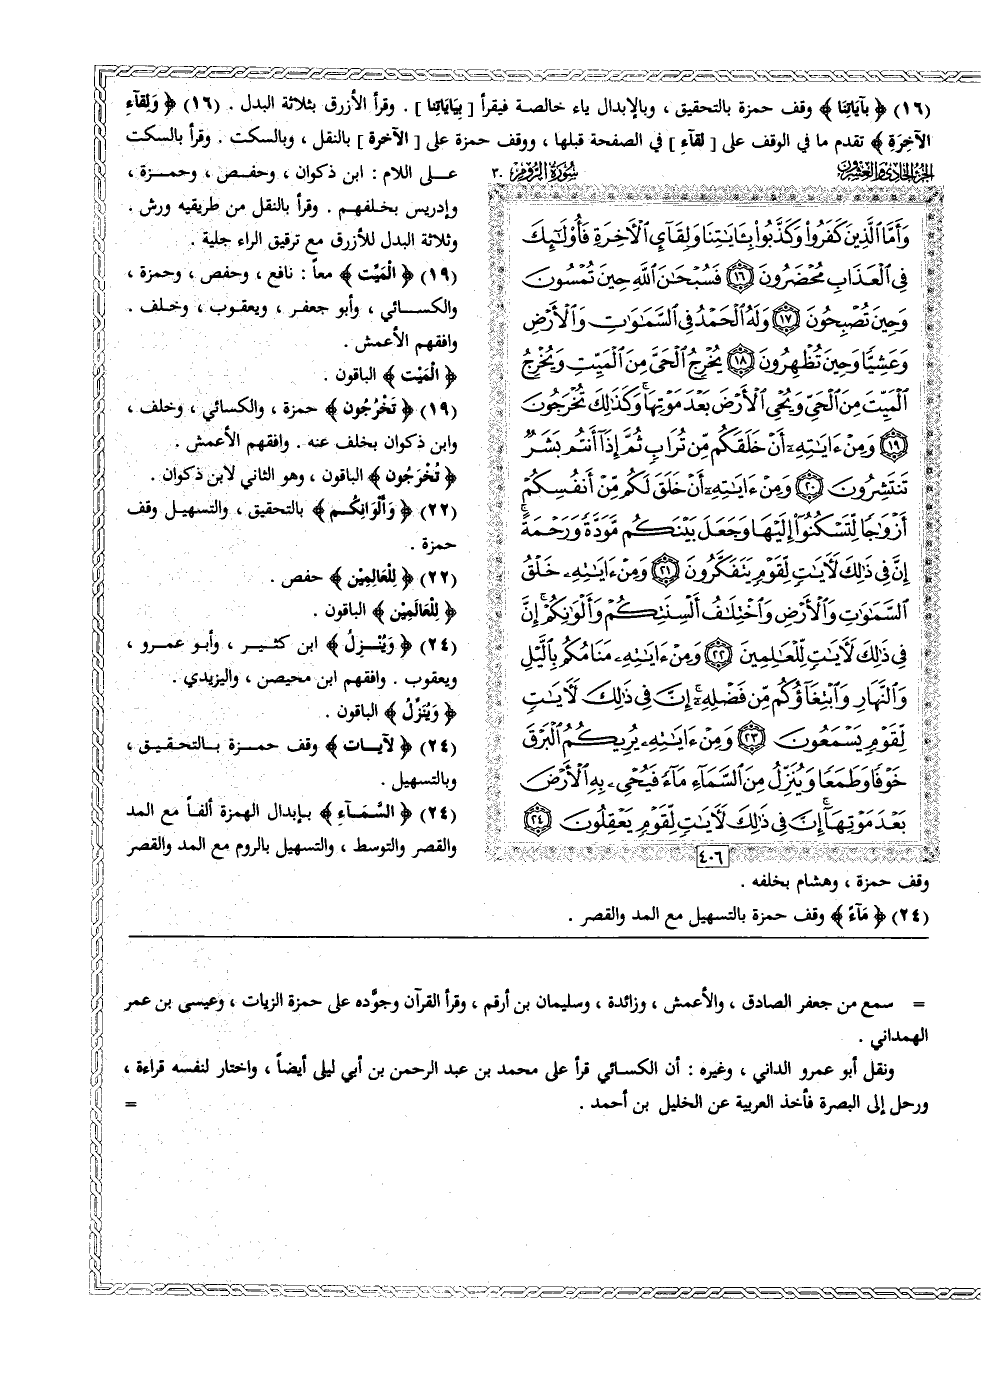 (١٦) ﴿ بآيَاتِنَا ﴾ وقف حمزة بالتحقيق ، وبالإبدال ياء خالصة فيقرأ [ بِيَايَاتِنا ] . وقرأ الأزرق بثلاثة البدل . (١٦) ﴿ وَلِقَآءِ
الآخِرَةِ ﴾ تقدم ما في الوقف على [ لقآءِ ] في الصفحة قبلها ، ووقف حمزة على [ الآخرة ] بالنقل ، وبالسكت . وقرأ بالسكت
على اللام : ابن ذكوان ، وحفص ، وحمزة ،
وإدريس بخلفهم . وقرأ بالنقل من طريقيه ورش .
وثلاثة البدل للأزرق مع ترقيق الراء جلية .
(١٩) ﴿ الْمَيِّت ﴾ معاً : نافع ، وحفص ، وحمزة ،
والكسائي ، وأبو جعفر ، ويعقوب ، وخلف .
وافقهم الأعمش .
﴿ الْمَيْت ﴾ الباقون .
(١٩) ﴿ تَخْرُجُون ﴾ حمزة ، والكسائي ، وخلف ،
وابن ذكوان بخلف عنه . وافقهم الأعمش .
﴿ تُخْرَجُون ﴾ الباقون ، وهو الثاني لابن ذكوان .
(٢٢) ﴿ وَأَلْوَانِكُم ﴾ بالتحقيق ، والتسهيل وقف
حمزة .
(٢٢) ﴿ لِلْعَالِمِيْن ﴾ حفص .
﴿ لِلْعَالَمِيْن ﴾ الباقون .
(٢٤) ﴿ وَيُنْزِلُ ﴾ ابن كثير ، وأبو عمرو ،
ويعقوب . وافقهم ابن محيصن ، واليزيدي .
﴿ وَيُنَزِّلُ ﴾ الباقون .
(٢٤) ﴿ لآيات ﴾ وقف حمزة بالتحقيق ،
وبالتسهيل .
(٢٤) ﴿ السَّمَآءِ ﴾ بإبدال الهمزة ألفاً مع المد
والقصر والتوسط ، والتسهيل بالروم مع المد والقصر
الجزء الحادي والعشرون سورة الروم ٣٠
وَأَمَّا الَّذِينَ كَفَرُوا۟ وَكَذَّبُوا۟ بِـَٔايَـٰتِنَا وَلِقَآئِ ٱلْـَٔاخِرَةِ فَأُو۟لَـٰٓئِكَ
فِى ٱلْعَذَابِ مُحْضَرُونَ ١٦ فَسُبْحَـٰنَ ٱللَّهِ حِينَ تُمْسُونَ
وَحِينَ تُصْبِحُونَ ١٧ وَلَهُ ٱلْحَمْدُ فِى ٱلسَّمَـٰوَٰتِ وَٱلْأَرْضِ
وَعَشِيًّا وَحِينَ تُظْهِرُونَ ١٨ يُخْرِجُ ٱلْحَىَّ مِنَ ٱلْمَيِّتِ وَيُخْرِجُ
ٱلْمَيِّتَ مِنَ ٱلْحَىِّ وَيُحْىِ ٱلْأَرْضَ بَعْدَ مَوْتِهَا ۚ وَكَذَٰلِكَ تُخْرَجُونَ
١٩ وَمِنْ ءَايَـٰتِهِۦٓ أَنْ خَلَقَكُم مِّن تُرَابٍ ثُمَّ إِذَآ أَنتُم بَشَرٌ
تَنتَشِرُونَ ٢٠ وَمِنْ ءَايَـٰتِهِۦٓ أَنْ خَلَقَ لَكُم مِّنْ أَنفُسِكُمْ
أَزْوَٰجًا لِّتَسْكُنُوٓا۟ إِلَيْهَا وَجَعَلَ بَيْنَكُم مَّوَدَّةً وَرَحْمَةً ۚ
إِنَّ فِى ذَٰلِكَ لَـَٔايَـٰتٍ لِّقَوْمٍ يَتَفَكَّرُونَ ٢١ وَمِنْ ءَايَـٰتِهِۦ خَلْقُ
ٱلسَّمَـٰوَٰتِ وَٱلْأَرْضِ وَٱخْتِلَـٰفُ أَلْسِنَتِكُمْ وَأَلْوَٰنِكُمْ ۚ إِنَّ
فِى ذَٰلِكَ لَـَٔايَـٰتٍ لِّلْعَـٰلِمِينَ ٢٢ وَمِنْ ءَايَـٰتِهِۦ مَنَامُكُم بِٱلَّيْلِ
وَٱلنَّهَارِ وَٱبْتِغَآؤُكُم مِّن فَضْلِهِۦٓ ۚ إِنَّ فِى ذَٰلِكَ لَـَٔايَـٰتٍ
لِّقَوْمٍ يَسْمَعُونَ ٢٣ وَمِنْ ءَايَـٰتِهِۦ يُرِيكُمُ ٱلْبَرْقَ
خَوْفًا وَطَمَعًا وَيُنَزِّلُ مِنَ ٱلسَّمَآءِ مَآءً فَيُحْىِۦ بِهِ ٱلْأَرْضَ
بَعْدَ مَوْتِهَآ ۚ إِنَّ فِى ذَٰلِكَ لَـَٔايَـٰتٍ لِّقَوْمٍ يَعْقِلُونَ ٢٤
٤٠٦
وقف حمزة ، وهشام بخلفه .
(٢٤) ﴿ مَآءً ﴾ وقف حمزة بالتسهيل مع المد والقصر .
= سمع من جعفر الصادق ، والأعمش ، وزائدة ، وسليمان بن أرقم ، وقرأ القرآن وجوَّده على حمزة الزيات ، وعيسى بن عمر
الهمداني .
ونقل أبو عمرو الداني ، وغيره : أن الكسائي قرأ على محمد بن عبد الرحمن بن أبي ليلى أيضاً ، واختار لنفسه قراءة ،
ورحل إلى البصرة فأخذ العربية عن الخليل بن أحمد . =